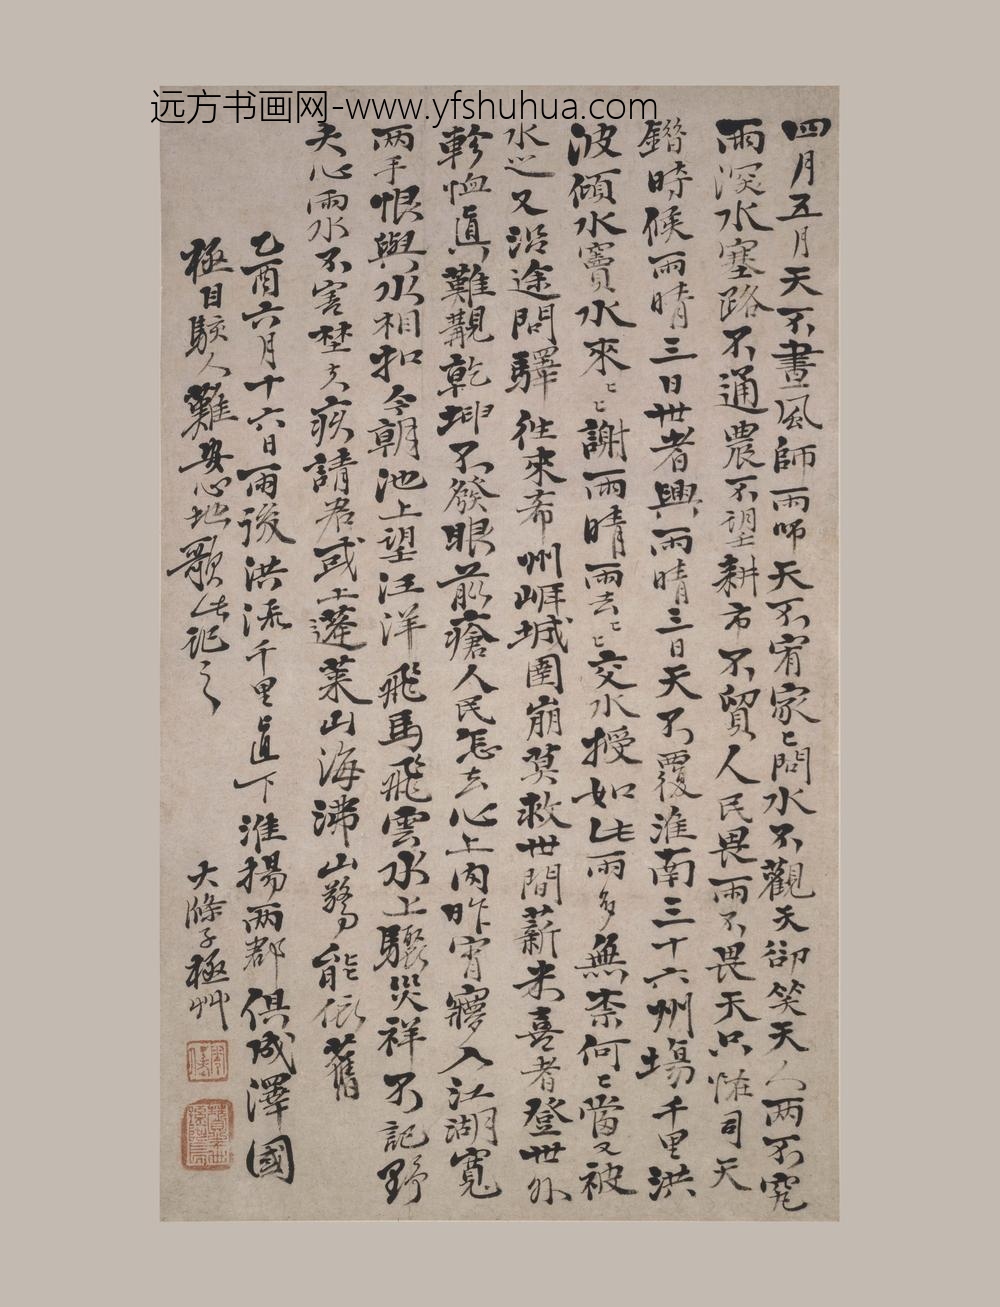 远方书画网-www.yfshuhua.com
四月五月天不晝風師雨師天不宥家々問水不觀天卻笑天人兩不究
雨深水塞路不通農不望耕市不貿人民畏雨不畏天只恠司天
錯時候雨晴三日世者興雨晴三日天不覆淮南三十六州場千里洪
波傾水竇水來々謝雨晴雨去々交水授如此雨多無柰何々當又被
水巡又沿途問驛往來希州崕城圍崩莫救世間薪米喜者登世外
軫恤真難覯乾坤不發眼前瘡人民怎去心上肉昨宵寢入江湖寬
兩手恨與水相扣今朝池上望汪洋飛馬飛雲水上驟災祥不記野
夫心雨水不害埜夫疾請君或上蓬萊山海沸山驚能依舊
乙酉六月十六日雨後洪流千里直下淮揚兩郡俱成澤國
極目駭人難安心地歌此記之
大滌子極艸